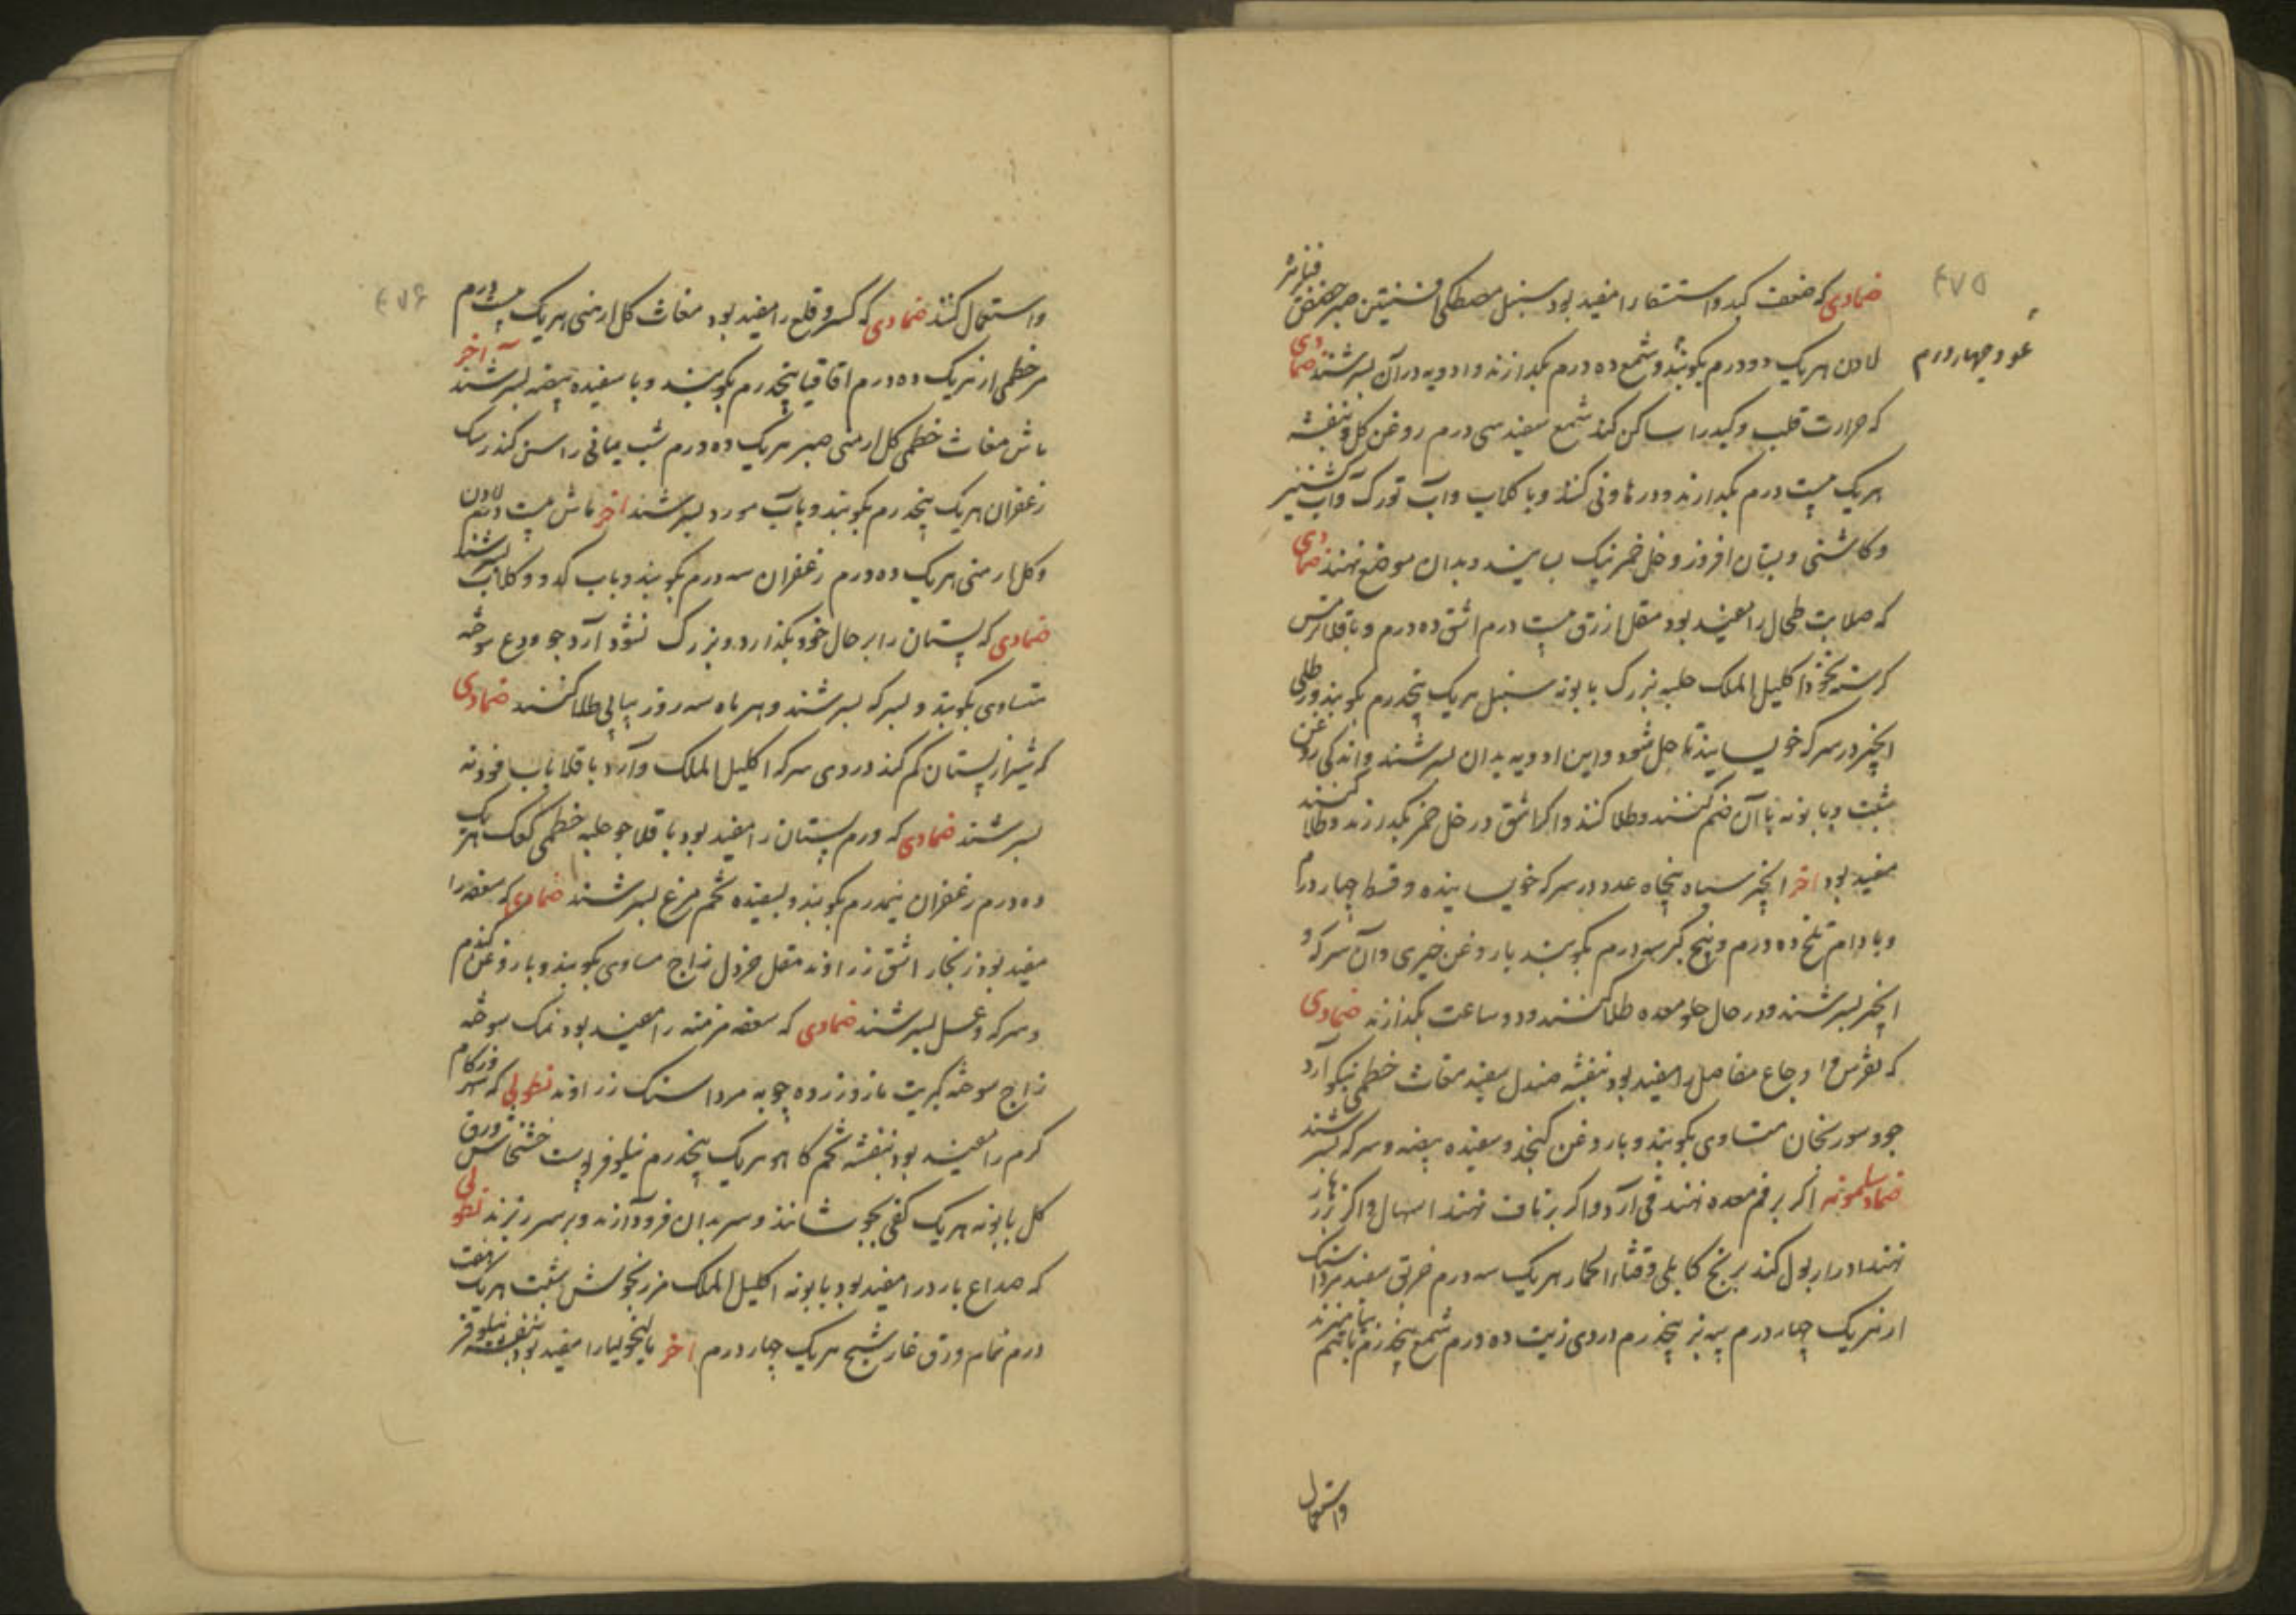 ۴۷۵
ضمادی که ضعف کبد و استسقا را مفید بود سنبل مصطکی افسنتین صبر حضض
لادن هریک دو درم بکوبند و شمع ده درم بکدازند و ادویه در آن بسرشند ضمادی
عود چهار درم
که حرارت قلب و کبد را ساکن کند شمع سفید سی درم روغن کل و بنفشه
هریک بیست درم بکدازند و در هاونی کنند و با کلاب و آب تورک و آب کشنیز
و کاشنی و بستان افروز و خل خمر نیک بسایند و بدان موضع نهند ضمادی
که صلابت طحال را مفید بود مقل ازرق بیست درم اشق ده درم و باقلا ترمس
کرسنه اکلیل الملک حلبه بزرک بابونه سنبل هریک پنجدرم بکوبند و رطلی
انجیر در سرکه خویسانیند تا حل شود و این ادویه بدان بسرشند و اندکی روغن
شبت و بابونه با آن ضم کنند و طلا کنند و اکر اشق در خل خمر بکدازند و طلا کنند
مفید بود اخر انجیر سیاه پنجاه عدد در سرکه خویسانیده و قسط چهار درم
و بادام تلخ ده درم و بیخ کبر سه درم بکوبند با روغن خیری و آن سرکه و
انجیر بسرشند و در حال خلو معده طلا کنند و دو ساعت بکذارند ضمادی
که نقرس و اوجاع مفاصل را مفید بود بنفشه صندل سفید مغاث خطمی نیکو آرد
جو و سورنجان متساوی بکوبند و با روغن کنجد و سفیده بیضه و سرکه بسرشند
ضماد سلمونه اکر بر فم معده نهند قی آرد و اکر بر ناف نهند اسهال و اکر بر زهار
نهند ادرار بول کند برنج کابلی و قثاء الحمار هریک سه درم خربق سفید مرداسنک
از هریک چهار درم پیه بز پنجدرم دردی زیت ده درم شمع پنجدرم باهم بیامیزند
واستعمال
۴۷۶
واستعمال کنند ضمادی که کسر و قلع را مفید بود مغاث کل ارمنی هریک بیست درم
مر خطمی از هریک ده درم اقاقیا پنجدرم بکوبند و با سفیده بیضه بسرشند آخر
ماش مغاث خطمی کل ارمنی صبر هریک ده درم شب یمانی راسن کندر سک
زعفران هریک پنجدرم بکوبند و باب مورد بسرشند اخر ماش بیست درم لادن
و کل ارمنی هریک ده درم زعفران سه درم بکوبند و باب کدو و کلاب بسرشند
ضمادی که پستان را بر حال خود بکذارد و بزرک نشود آرد جو ودع سوخته
متساوی بکوبند و بسرکه بسرشند و هر ماه سه روز پیاپی طلا کنند ضمادی
که شیر از پستان کم کند دردی سرکه اکلیل الملک و آرد باقلا باب فودنه
بسرشند ضمادی که ورم پستان را مفید بود باقلا جو حلبه خطمی کعک هریک
ده درم زعفران نیمدرم بکوبند و بسفیده تخم مرغ بسرشند ضمادی که سعفه را
مفید بود زنجار اشق زراوند مقل خردل زاج مساوی بکوبند و با روغن کندم
و سرکه و عسل بسرشند ضمادی که سعفه مزمنه را مفید بود نمک سوخته
زاج سوخته کبریت مازو زرده چوبه مرداسنک زراوند نطولی که سر و زکام
کرم را مفید بود بنفشه تخم کاهو هریک پنجدرم نیلوفر پوست خشخاش ورق
کل بابونه هریک کفی بجوشانند و سر بدان فرود آرند و بر سر ریزند نطولی
که صداع بارد را مفید بود بابونه اکلیل الملک مرزنجوش شبت هریک هفت
درم نمام ورق غار شیح هریک چهار درم اخر مالیخولیا را مفید بود بنفشه نیلوفر